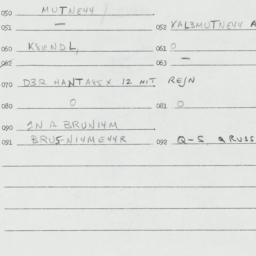 050 MUTNEYY
051 — 052 XAL3MUTNEYY A
060 KSUNDL, 061 O
062 063 —
070 D3R HANTASEX 12 MIT REJN
080 O 081 O
090 2N A BRUN14M
091 BRUS-N14MEYYR 092 Q-S QRUSS